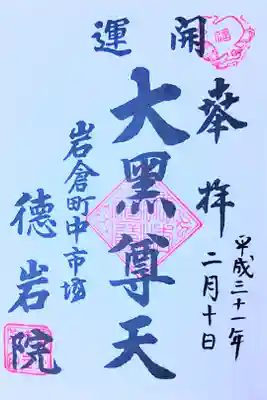 開運
奉拝
平成三十一年
二月十日
大黑尊天
岩倉町中市場
德岩院